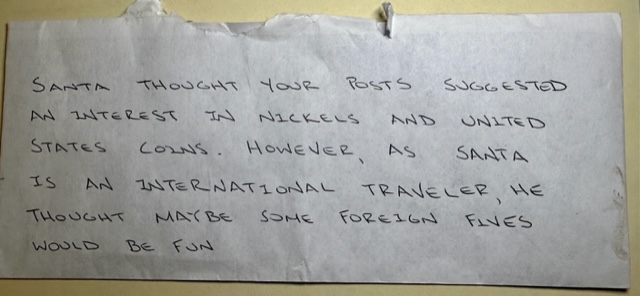 SANTA THOUGHT YOUR POSTS SUGGESTED
AN INTEREST IN NICKELS AND UNITED
STATES COINS. HOWEVER, AS SANTA
IS AN INTERNATIONAL TRAVELER, HE
THOUGHT MAYBE SOME FOREIGN FIVES
WOULD BE FUN